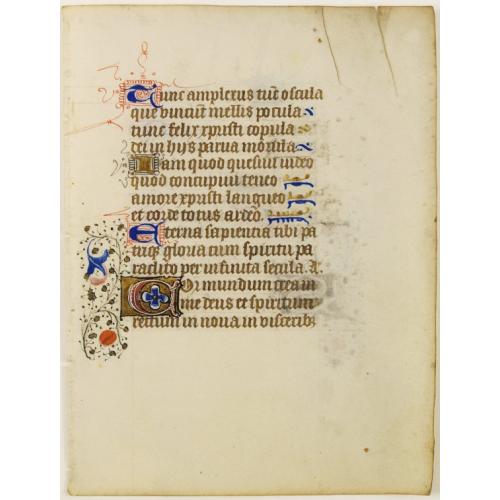 Tunc amplexus tūc oscula
que vincūt mellis pocula
tunc felix xpristi copula
sed in hys parua morula
Iam quod quesiui video
quod concupiui teneo
amore xpristi langueo
et corde totus ardeo.
Eterna sapientia tibi pa
triqꝫ gloria cum spiritu pa
raclito per infinita secula. A.
Cor mundum crea in
me deus et spiritum
rectum in noua in visceribꝫ